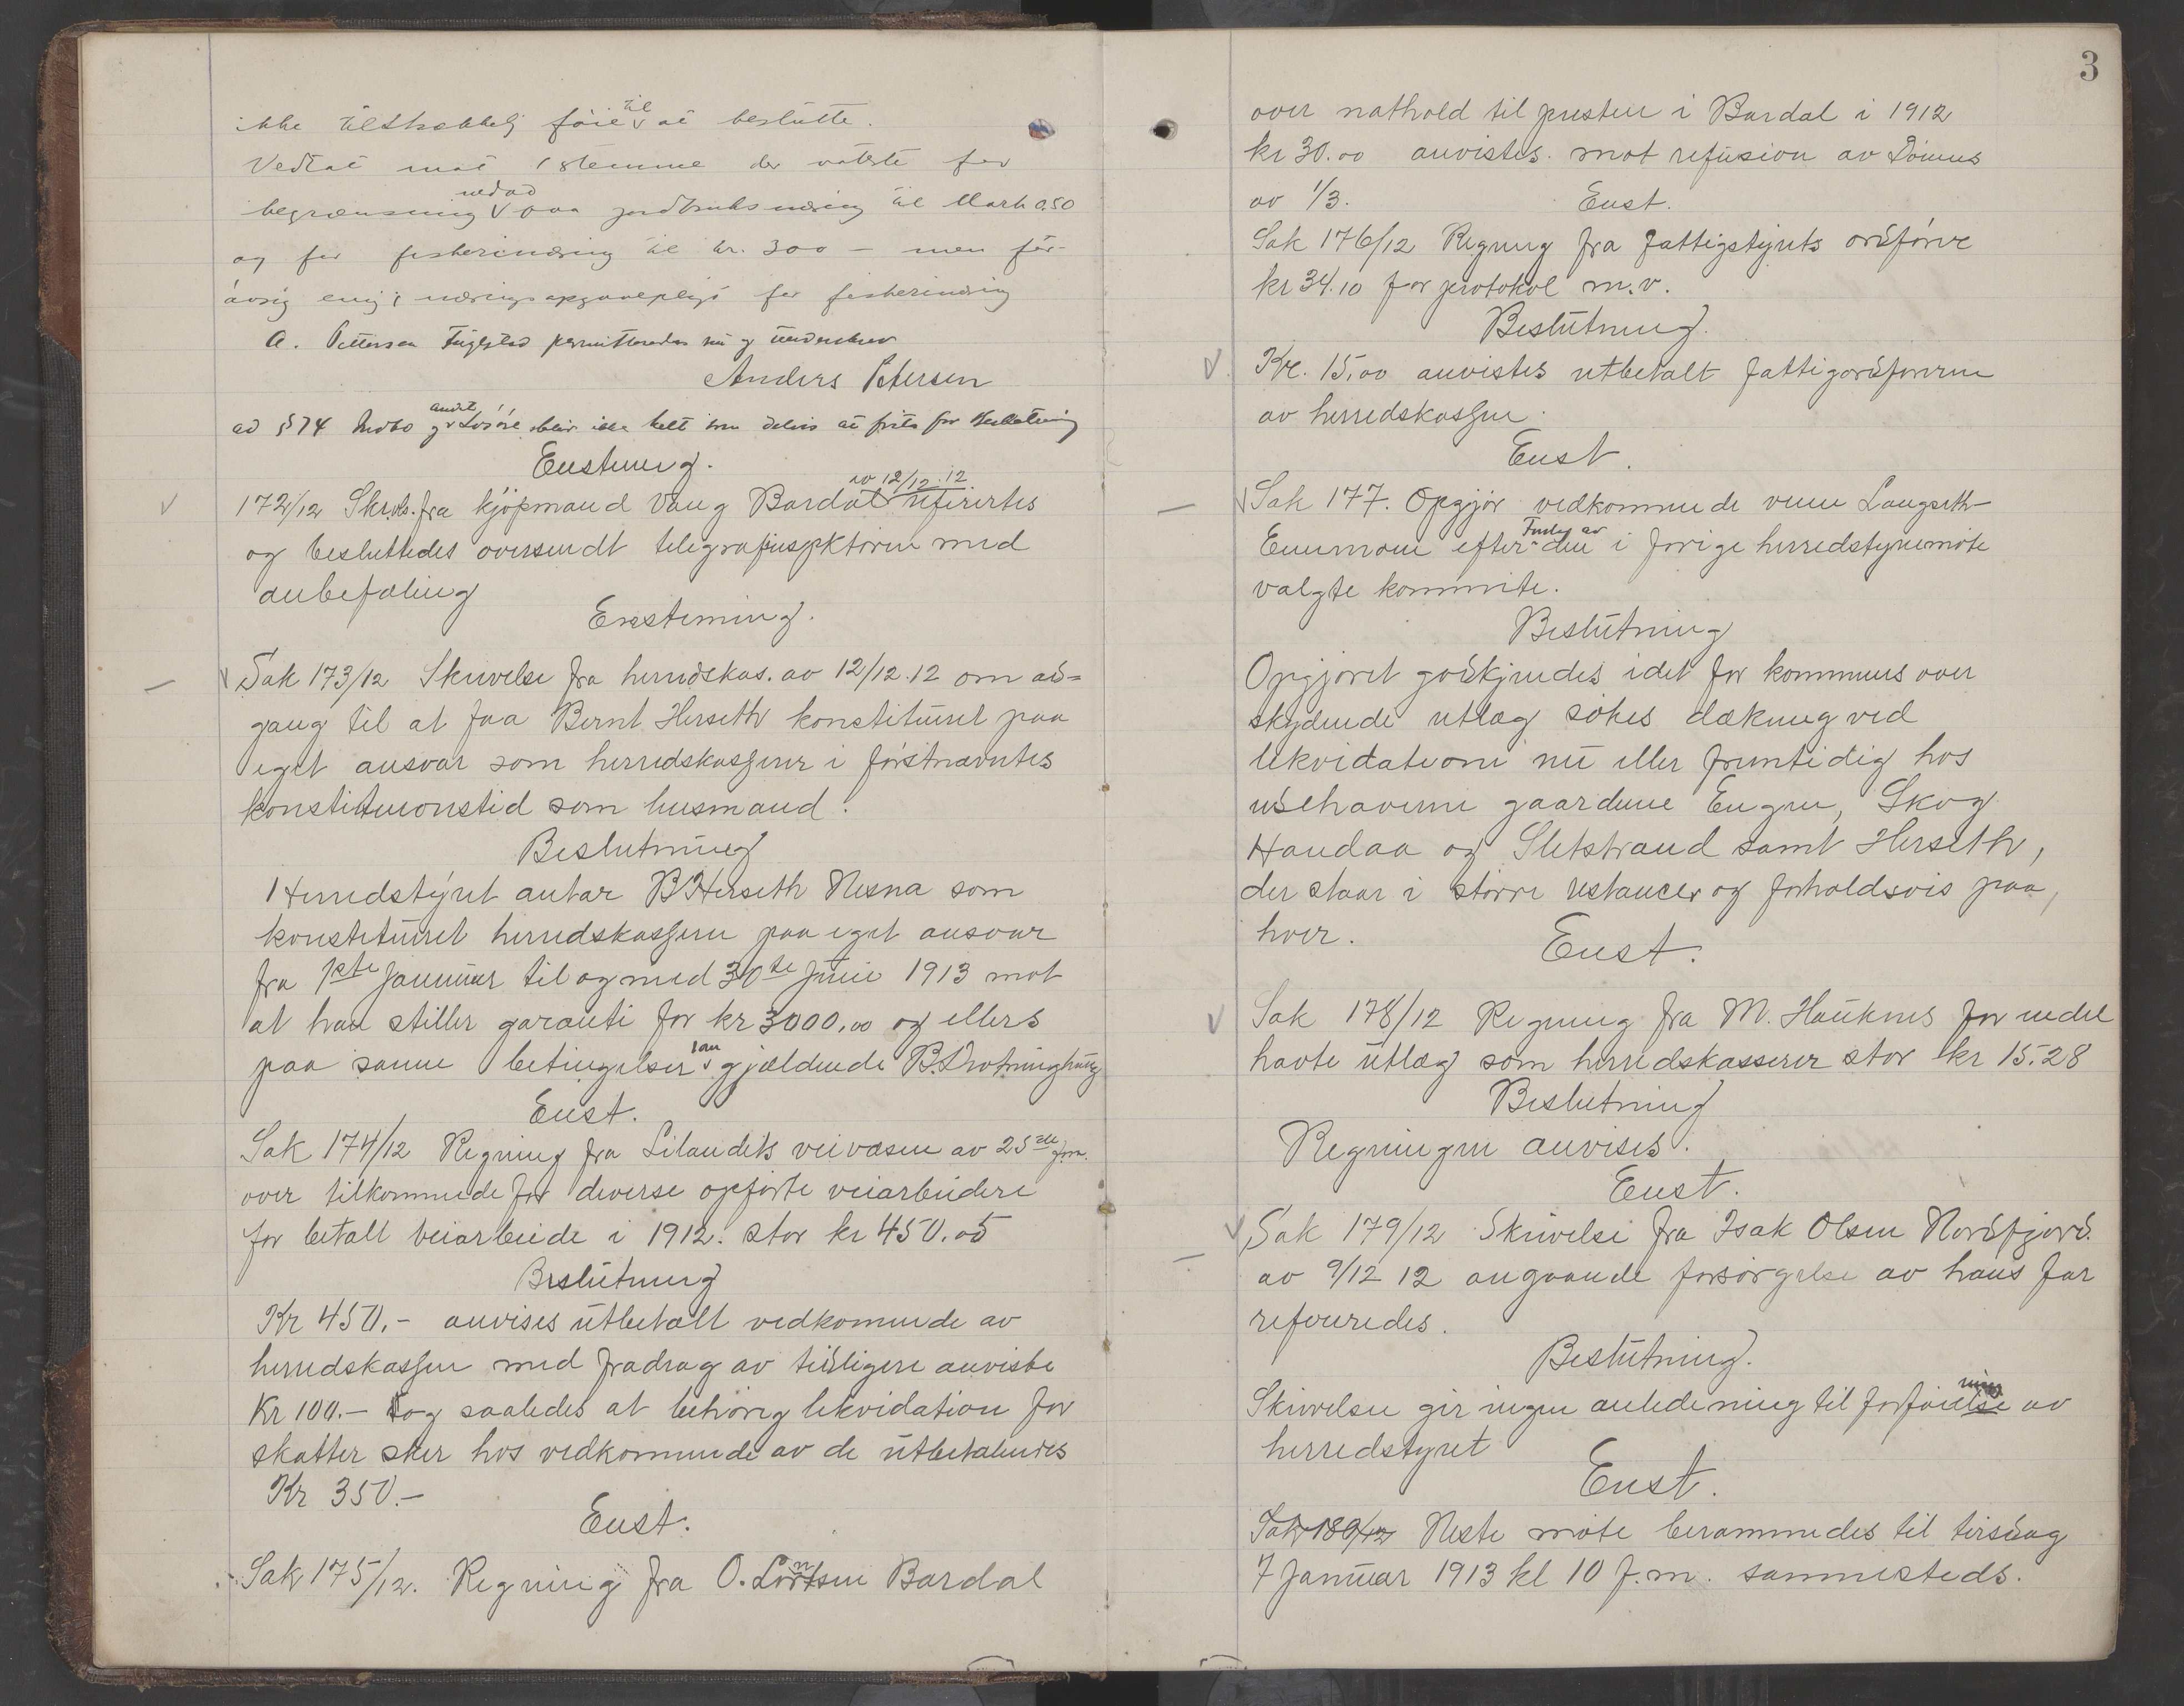 ikke tilstrækkelig føie til at beslutte.
Vedtat mot 1 stemme der voterte for
begrænsning nedad paa jordbruksnæring til Mark 0.50
og for fiskerinæring til kr. 300 – men for-
øvrig enig i næringsopgavepligt for fiskerinæring
A. Pettersen Fuglstad permitteredes nu og underskrev
Anders Petersen
ad § 74 Indbo og andet Løsøre blir ikke helt eller delvis at frita for beskatning
Enstemmig.
172/12 Skrivls. fra kjøpmand Vaug Bardal av 12/12.12 refirertes
og besluttedes oversendt telegrafinspktøren med
anbefaling
Enstemmig.
Sak 173/12 Skrivelse fra herredskas. av 12/12.12 om ad=
gang til at faa Bernt Herseth konstitueret paa
eget ansvar som herredskasserer i førstnævntes
konstitutionstid som lensmand.
Beslutning
Herredstyret antar B Herseth Nesna som
konstitueret herredskasserer paa eget ansvar
fra 1ste Januuar til og med 30te Juni 1913 mot
at han stiller garanti for kr 3000,00 og ellers
paa samme betingelser som gjældende B. Drotninghaug
Enst.
Sak 174/12 Regning fra Lilandets veivæsen av 25de fm.
over tilkommende for diverse opførte veiarbeidere
for betalt veiarbeide i 1912. stor kr 450.05
Beslutning
Kr 450.– anvises utbetalt vedkommende av
herredskassen med fradrag av tidligere anviste
Kr 100.– og saaledes at behørig likvidation for
skatter sker hos vedkommende av de utbetalendes
Kr 350.–
Enst.
Sak 175/12. Regning fra O. Lorntsen Bardal
3
over nathold til presten i Bardal i 1912
kr 30.00 anvistes mot refusion av Dønnes
av 1/3. Enst.
Sak 176/12 Regning fra Fattigstyrets ordfører
kr 34.10 for protokol m.v.
Beslutning.
Kr. 15,00 anvistes utbetalt fattigordføreren
av herredskassen.
Enst.
Sak 177. Opgjør vedkommende veien Langseth-
Enummoen efter Forslag av den i forige herredstyremøte
valgte kommite.
Beslutning
Opgjøret godkjendes idet for kommunens over
skydende utlæg søkes dækning ved
likvidation nu eller fremtidig hos
indehaverne gaardene Engen, Skog
Handaa og Sletstrand samt Herseth,
der staar i større restancer og forholdsvis paa
hver. Enst.
Sak 178/12 Regning fra M. Hauknes for endel
havte utlæg som herredskasserer stor kr 15.28
Beslutning
Regningen anvises.
Enst.
Sak 179/12 Skrivelse fra Isak Olsen Nordfjord.
av 9/12 12 angaaende forsørgelse av hans far
refereredes.
Beslutning.
Skrivelsen gir ingen anledening til forføining av
herredstyret
Enst.
Sak 180/12 Neste møte berammedes til tirsdag
7 Januar 1913 kl 10 f.m. sammesteds.